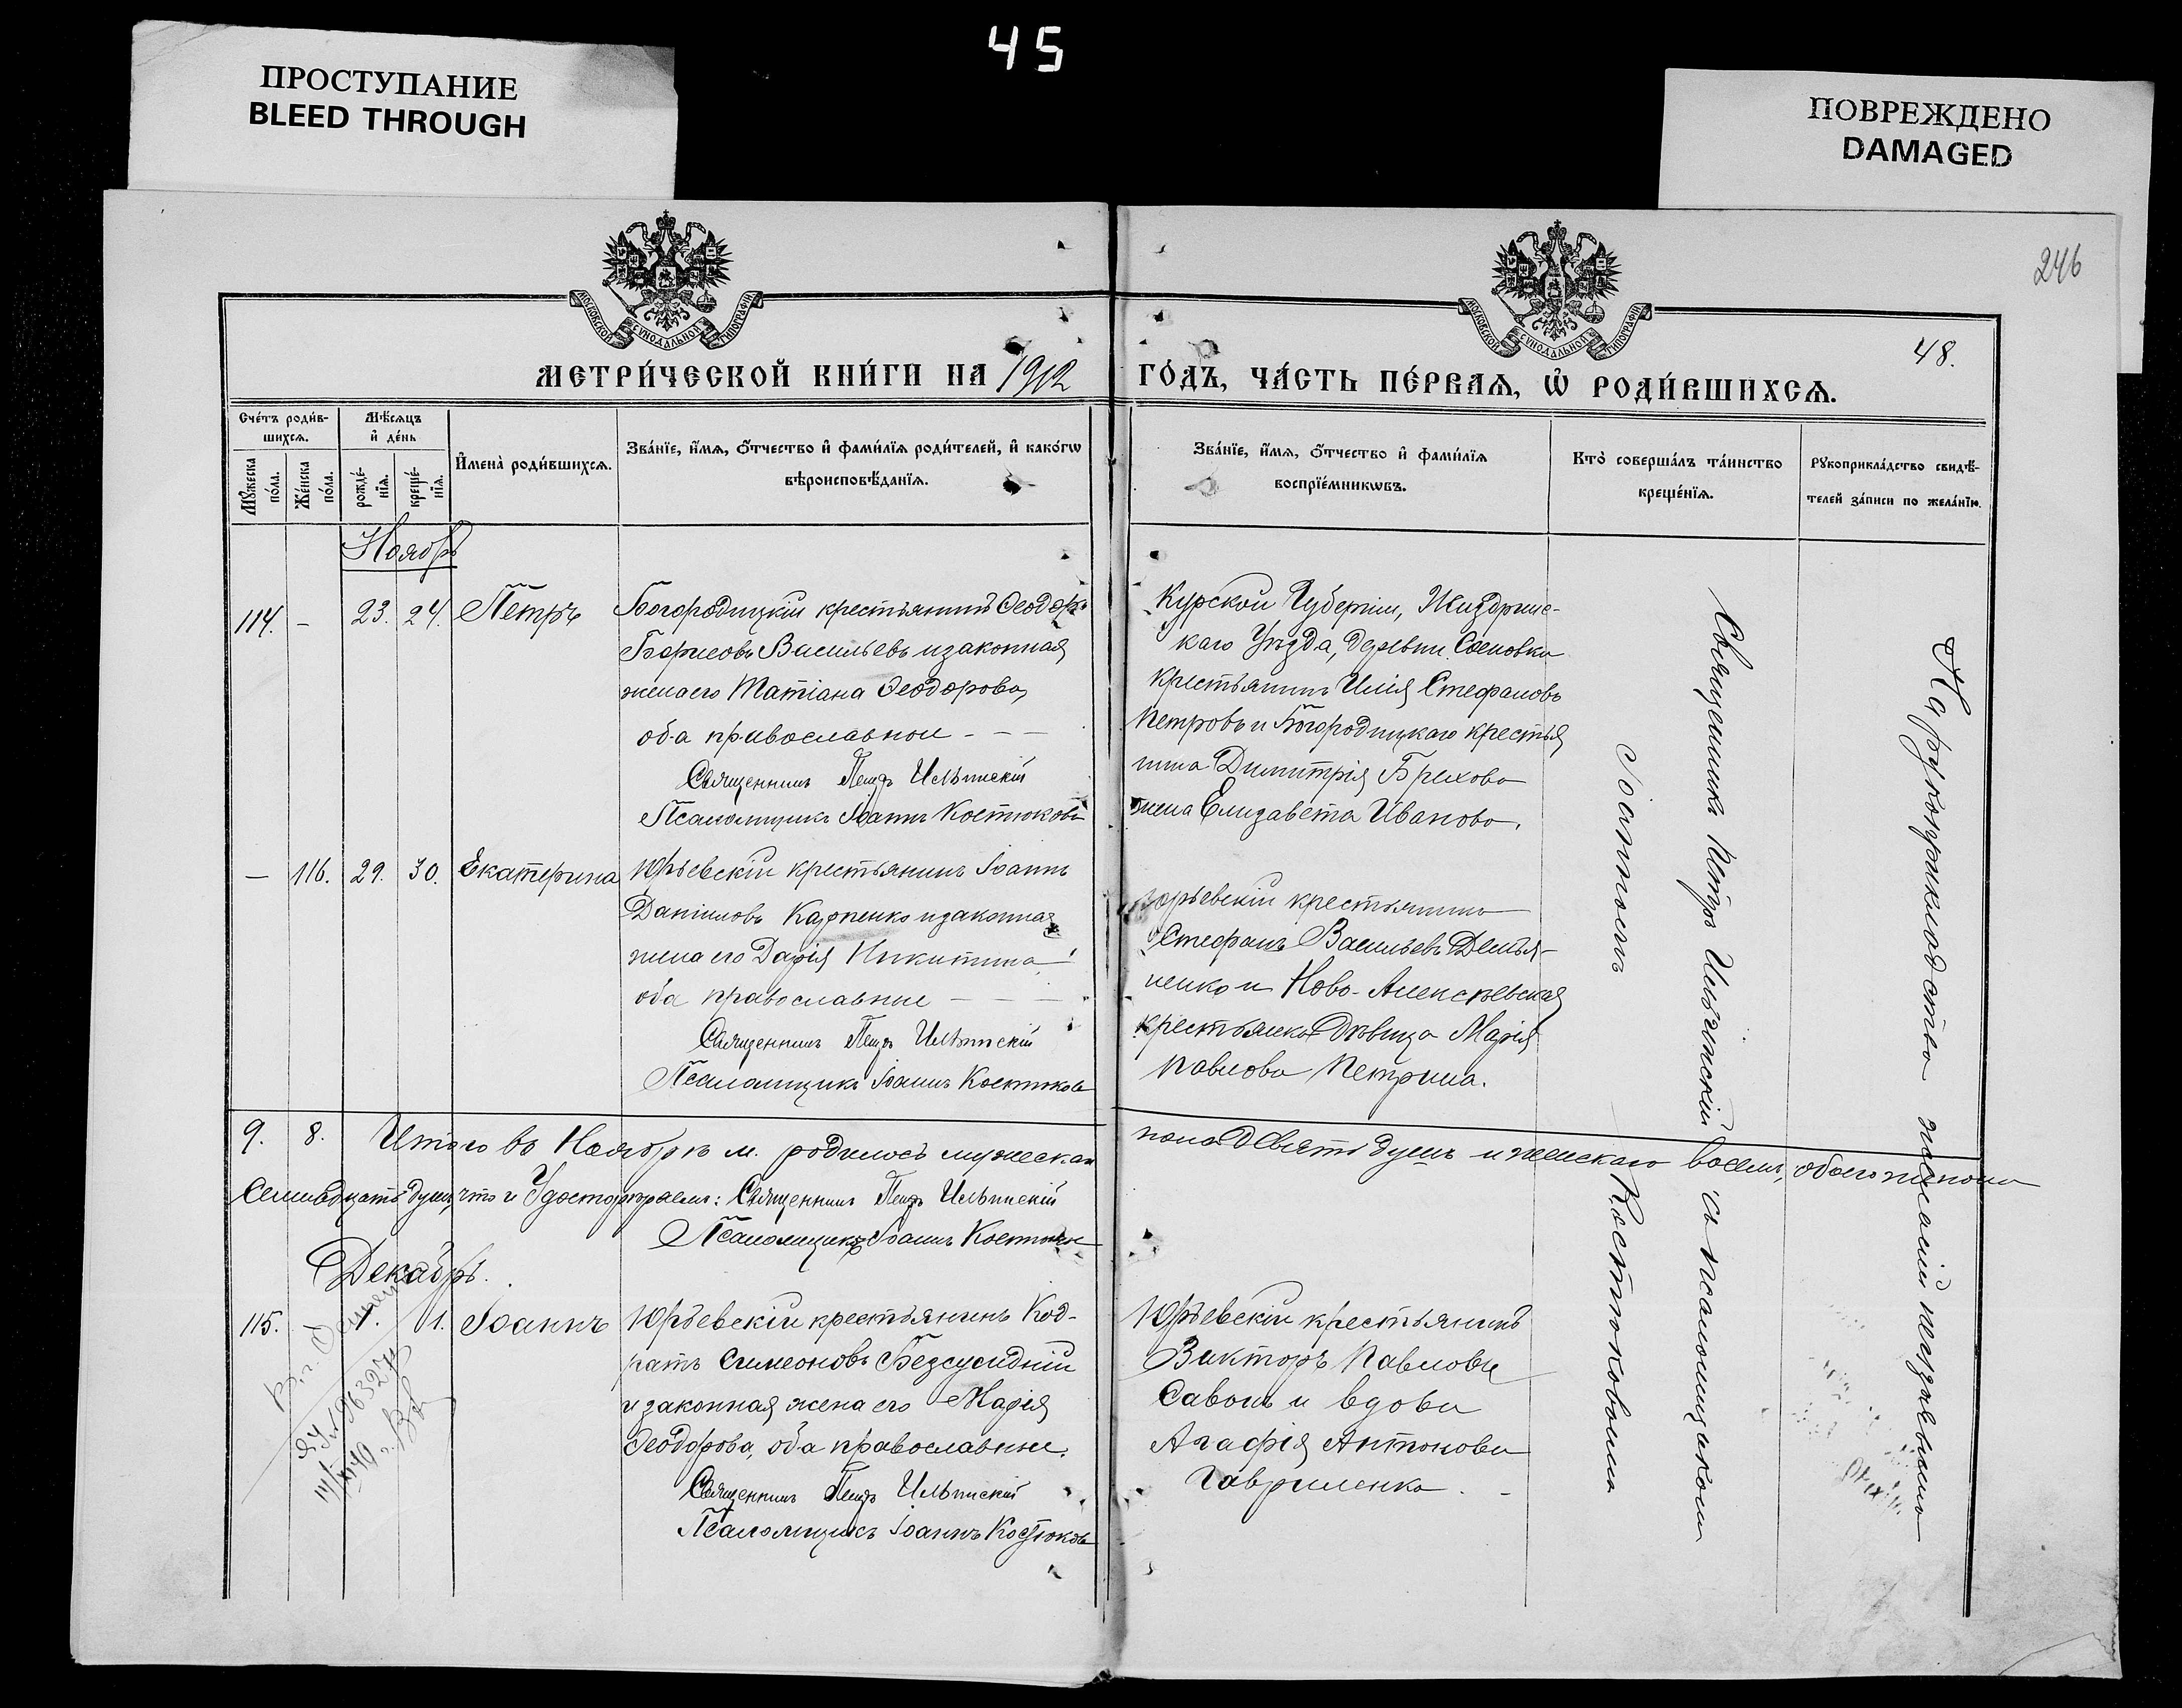 45
ПРОСТУПАНИЕ
BLEED THROUGH
ПОВРЕЖДЕНО
DAMAGED
246
МОСКОВСКОЙ СУНОДАЛЬНОЙ ТИПОГРАФІИ
МОСКОВСКОЙ СУНОДАЛЬНОЙ ТИПОГРАФІИ
48.
МЕТРИ́ЧЕСКОЙ КНИ́ГИ НА 1912
ГО́ДЪ, ЧА́СТЬ ПЕ́РВАѦ, Ѡ҆ РОДИ́ВШИХСѦ.
Сче́тъ роди́в-
шихсѧ.
Мѣ́сѧцъ
и҆ де́нь
Мꙋ́жеска
по́ла.
Же́нска
по́ла.
рожде́-
нїѧ.
креще́-
нїѧ.
И҆мена̀ роди́вшихсѧ.
Зва́нїе, и҆́мѧ, ѻ҆́тчество и҆ фами́лїѧ роди́телей, и҆ како́гѡ
вѣроисповѣ́данїѧ.
Зва́нїе, и҆́мѧ, ѻ҆́тчество и҆ фами́лїѧ
воспрїе́мникѡвъ.
Кто̀ соверша́лъ та́инство
креще́нїѧ.
Рꙋкоприкла́дство свидѣ́-
телей за́писи по жела́нїю.
Ноябрь
114. – 23. 24. Петръ
Богородицкій крестьянинъ Ѳеодоръ
Борисовъ Васильевъ и законная
жена его Татіана Ѳеодорова,
оба православные – – –
Священникъ Петръ Ильинскій
Псаломщикъ Іоаннъ Костюковъ
Курской Губерніи, Жиздринс-
каго Уѣзда, деревни Сосновки
крестьянинъ Илія Стефановъ
Петровъ и Богородицкаго крестья
нина Димитрія Брехова
жена Елизавета Иванова.
– 116. 29. 30. Екатерина
Юрьевскій крестьянинъ Іоаннъ
Даніиловъ Карпенко и законная
жена его Дарія Никитина
оба православные – – –
Священникъ Петръ Ильинскій
Псаломщикъ Іоаннъ Костюковъ
Юрьевскій крестьянинъ
Стефанъ Васильевъ Демья-
ненко и Ново-Алексѣевская
крестьянка дѣвица Марія
Павлова Петрина.
9. 8. Итого въ Ноябрѣ м. родилось мужеска
пола девять душъ и женскаго восемь, обоего пола
семнадцать душъ, что и удостовѣряемъ: Священникъ Петръ Ильинскій
Псаломщикъ Іоаннъ Костюковъ
Декабрь.
115. 1. 1. Іоаннъ
Юрьевскій крестьянинъ Код-
ратъ Симеоновъ Безсусідній
и законная жена его Марія
Ѳеодорова, оба православные.
Священникъ Петръ Ильинскій
Псаломщикъ Іоаннъ Костюковъ
Юрьевскій крестьянинъ
Викторъ Павловъ
Савонь и вдова
Агафія Антонова
Гавриленко. –
Священникъ Петръ Ильинскій съ псаломщикомъ
Іоанномъ Костюковымъ
На рукоприкладство желаній не изъявлено